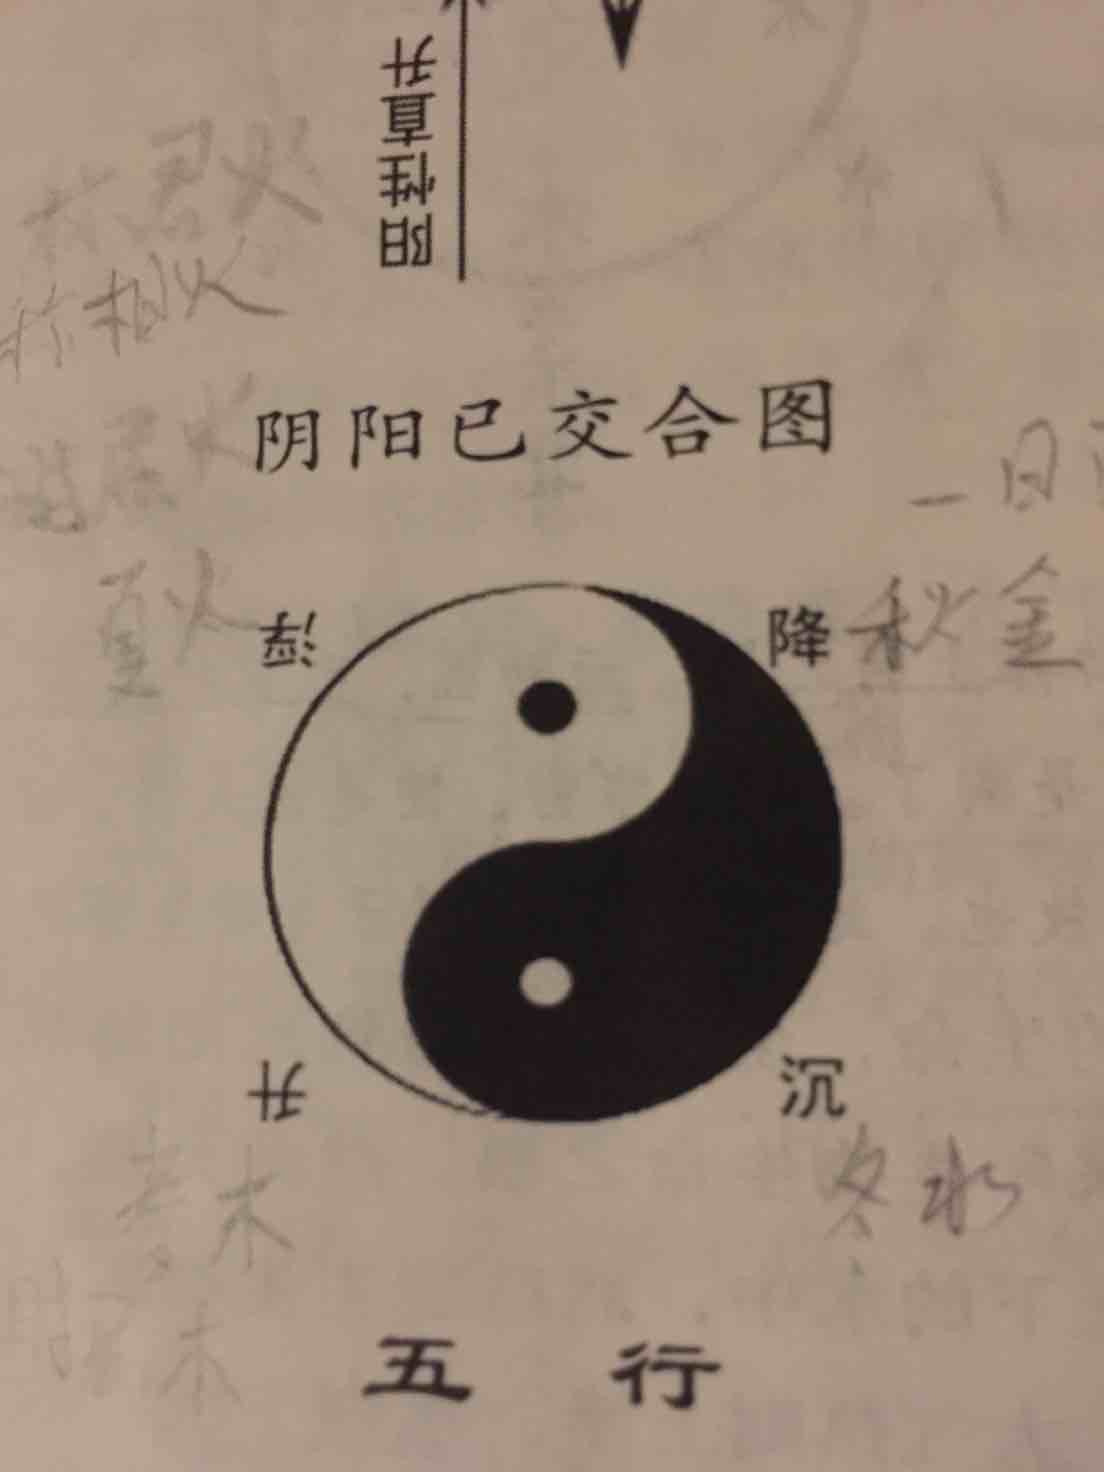 阳性直升
称君火
称相火
阴阳已交合图
一日
夏火
浮
降
秋金
升
沉
春木
冬水
木
五 行